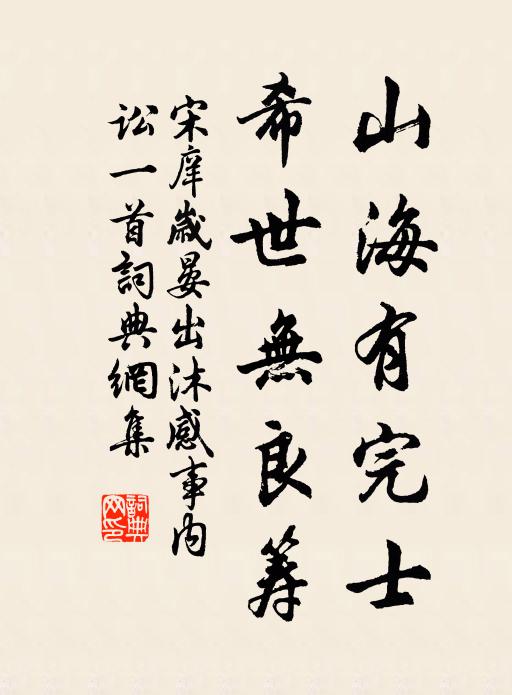 山海有完士
希世無良筹
宋庠歲晏出沐感事内
訟一首詞典網集
詞典
网印